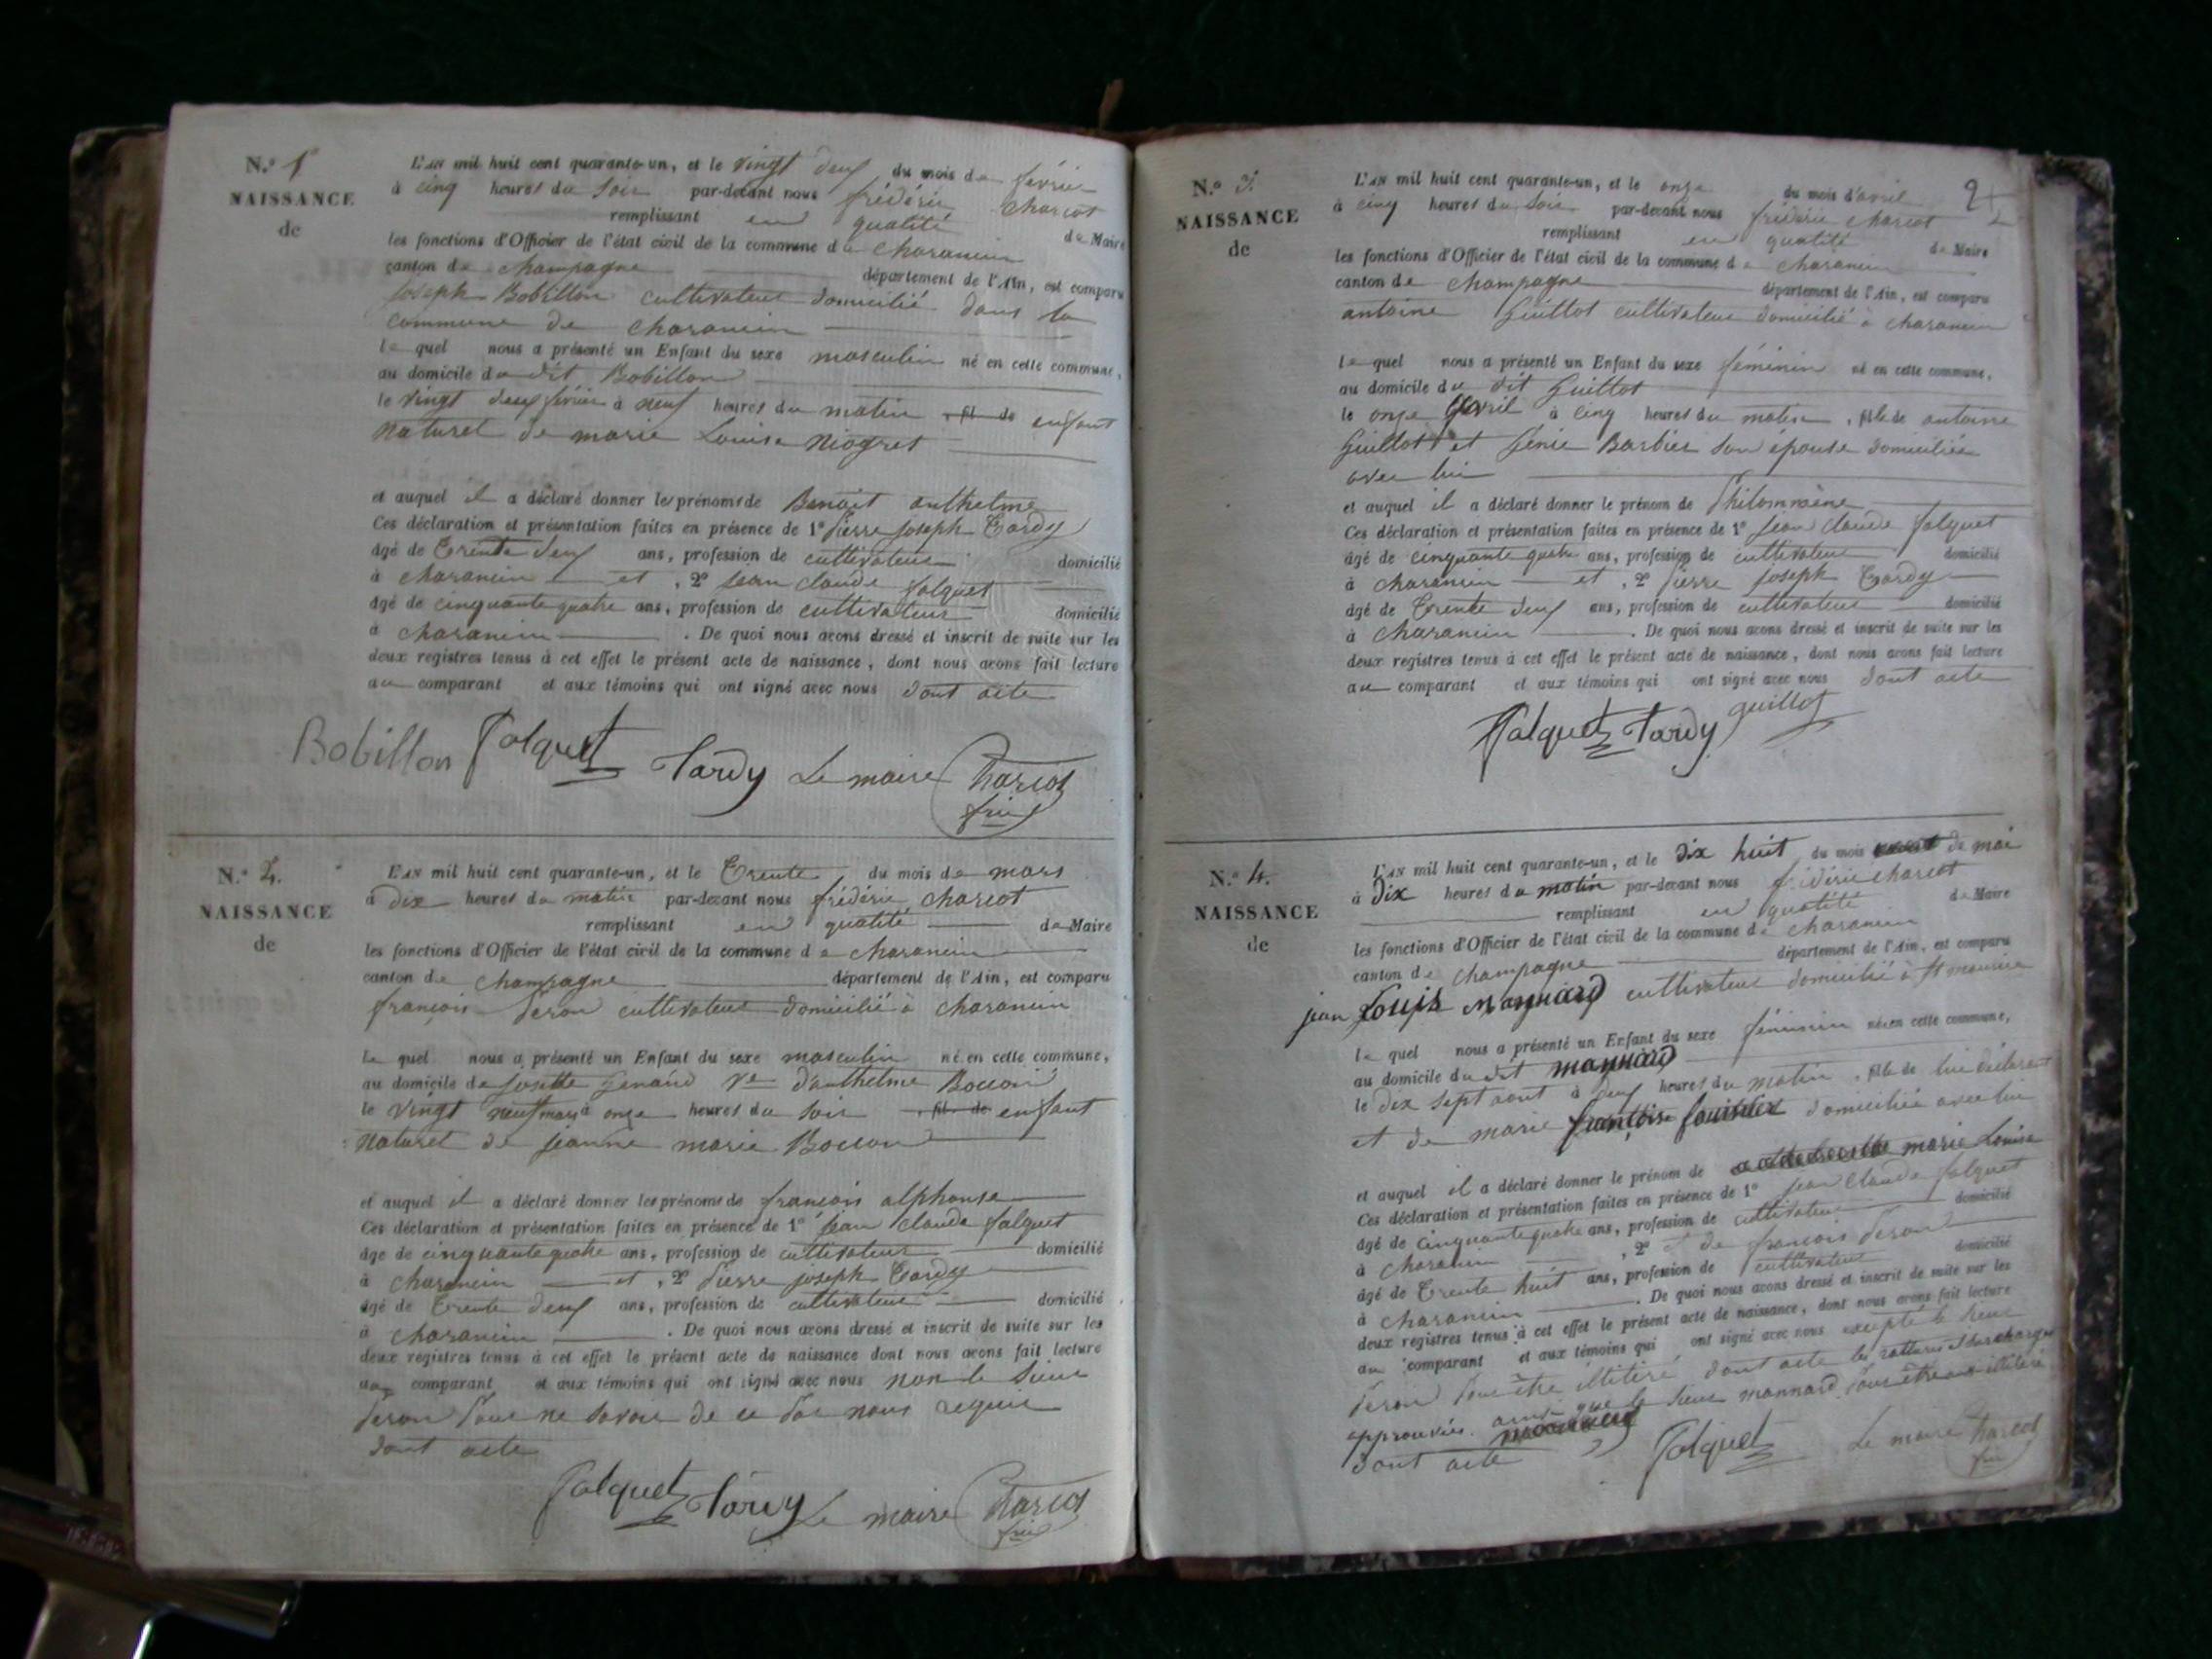 N.º 1
NAISSANCE
de
L'AN mil huit cent quarante-un, et le vingt deux du mois de février
à cinq heures du soir par-devant nous frédéric charcot
remplissant en qualité de Maire
les fonctions d'Officier de l'état civil de la commune de charancin
canton de champagne département de l'Ain, est comparu
joseph Bobillon cultivateur domicilié dans la
commune de charancin
lequel nous a présenté un Enfant du sexe masculin né en cette commune,
au domicile du dit Bobillon
le vingt deux février à neuf heures du matin , fil de enfant
naturel de marie Louise Niogret
et auquel il a déclaré donner les prénoms de Benoit anthelme
Ces déclaration et présentation faites en présence de 1º Pierre joseph Tardy
âgé de trente deux ans, profession de cultivateur domicilié
à charancin et , 2º jean claude falquet
âgé de cinquante quatre ans, profession de cultivateur domicilié
à charancin . De quoi nous avons dressé et inscrit de suite sur les
deux registres tenus à cet effet le présent acte de naissance, dont nous avons fait lecture
au comparant et aux témoins qui ont signé avec nous dont acte
Bobillon falquet Tardy Le maire Charcot
N.º 2.
NAISSANCE
de
L'AN mil huit cent quarante-un, et le trente du mois de mars
à dix heures du matin par-devant nous frédéric charcot
remplissant en qualité de Maire
les fonctions d'Officier de l'état civil de la commune de charancin
canton de champagne département de l'Ain, est comparu
françois cultivateur domicilié à charancin
lequel nous a présenté un Enfant du sexe masculin né en cette commune,
au domicile de josette Ve d'anthelme
le vingt neuf mars à onze heures du soir , fil de enfant
naturel de jeanne marie
et auquel il a déclaré donner les prénoms de françois alphonse
Ces déclaration et présentation faites en présence de 1º jean claude falquet
âgé de cinquante quatre ans, profession de cultivateur domicilié
à charancin et , 2º Pierre joseph Tardy
âgé de trente deux ans, profession de cultivateur domicilié
à charancin . De quoi nous avons dressé et inscrit de suite sur les
deux registres tenus à cet effet le présent acte de naissance dont nous avons fait lecture
au comparant et aux témoins qui ont signé avec nous non le sieur
pour ne savoir de ce par nous requis
dont acte
falquet Tardy Le maire Charcot
2
N.º 3.
NAISSANCE
de
L'AN mil huit cent quarante-un, et le onze du mois d'avril
à cinq heures du soir par-devant nous frédéric charcot
remplissant en qualité de Maire
les fonctions d'Officier de l'état civil de la commune de charancin
canton de champagne département de l'Ain, est comparu
antoine Guillot cultivateur domicilié à charancin
lequel nous a présenté un Enfant du sexe féminin né en cette commune,
au domicile du dit Guillot
le onze avril à cinq heures du matin , fille de antoine
Guillot et génie Barbier son épouse domiciliée
avec lui
et auquel il a déclaré donner le prénom de Philomène
Ces déclaration et présentation faites en présence de 1º jean claude falquet
âgé de cinquante quatre ans, profession de cultivateur domicilié
à charancin et , 2º Pierre joseph Tardy
âgé de trente deux ans, profession de cultivateur domicilié
à charancin . De quoi nous avons dressé et inscrit de suite sur les
deux registres tenus à cet effet le présent acte de naissance, dont nous avons fait lecture
au comparant et aux témoins qui ont signé avec nous dont acte
falquet Tardy guillot
N.º 4.
NAISSANCE
de
L'AN mil huit cent quarante-un, et le dix huit du mois de mai
à dix heures du matin par-devant nous frédéric charcot
remplissant en qualité de Maire
les fonctions d'Officier de l'état civil de la commune de charancin
canton de champagne département de l'Ain, est comparu
jean Louis mannard cultivateur domicilié à st maurice
lequel nous a présenté un Enfant du sexe féminin né en cette commune,
au domicile du dit mannard
le dix sept août à deux heures du matin , fille de lui déclarant
et de marie françoise domiciliée avec lui
et auquel il a déclaré donner le prénom de marie Louise
Ces déclaration et présentation faites en présence de 1º jean claude falquet
âgé de cinquante quatre ans, profession de cultivateur domicilié
à charancin , 2º et de françois
âgé de trente huit ans, profession de cultivateur domicilié
à charancin . De quoi nous avons dressé et inscrit de suite sur les
deux registres tenus à cet effet le présent acte de naissance, dont nous avons fait lecture
au comparant et aux témoins qui ont signé avec nous excepté le sieur
pour être illitéré dont acte les ratures et surcharges
approuvées ainsi que le sieur mannard pour être aussi illitéré
dont acte falquet Le maire Charcot